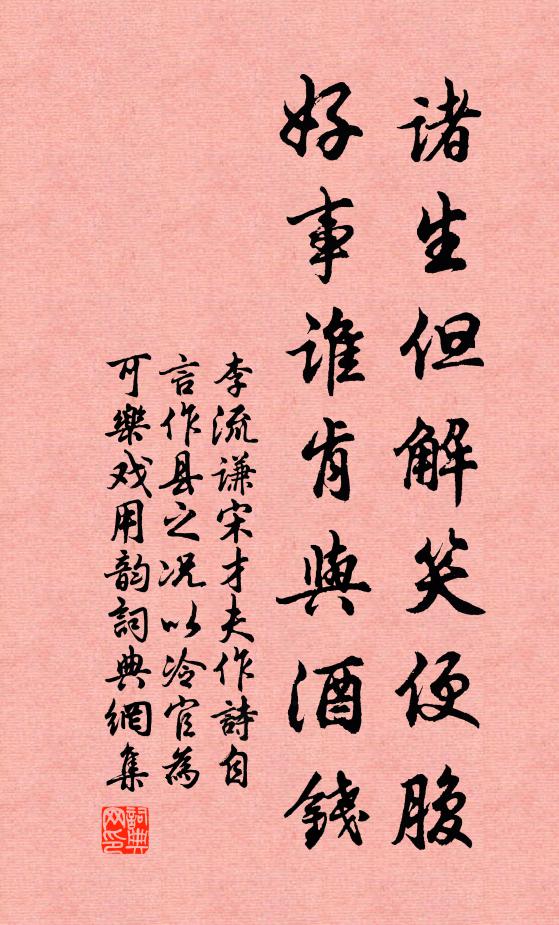 诸生但解笑便腹
好事谁肯與酒錢
李流谦宋才夫作詩自
言作县之况以冷官為
可樂戏用韵詞典網集
詞典
网印